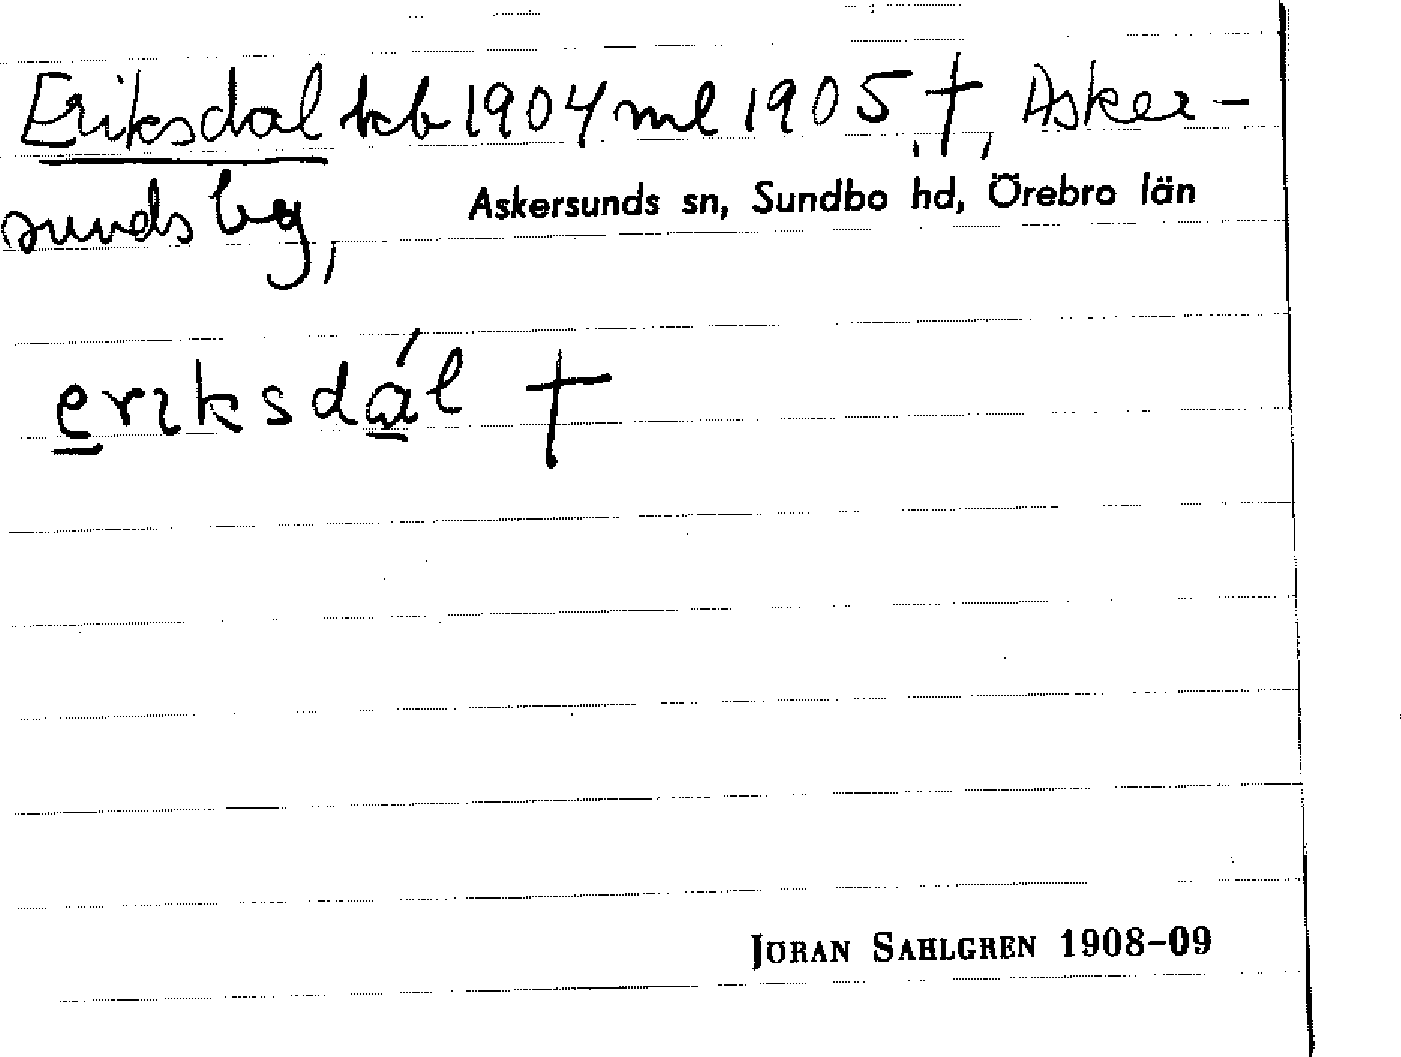 Eriksdal kb 1904 ml 1905 †, Asker-
sunds bg, Askersunds sn, Sundbo hd, Örebro län
eriksdál †
JÖRAN SAHLGREN 1908-09